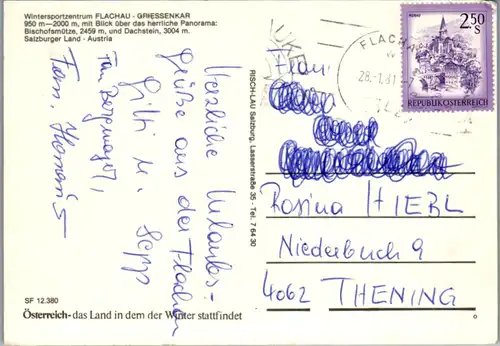 Wintersportzentrum FLACHAU - GRIESSENKAR
950 m—2000 m, mit Blick über das herrliche Panorama:
Bischofsmütze, 2459 m, und Dachstein, 3004 m.
Salzburger Land - Austria
Herzliche Urlaubs-
Grüße aus der Flachau
Gitti u. Sepp
Fam. Bergmayr,
Fam.
SF 12.380
Österreich - das Land in dem der Winter stattfindet
RISCH-LAU Salzburg, Lasserstraße 35 - Tel. 7 64 30
FLACHAU
28.-1.81
MURAU
2.50
S
REPUBLIK ÖSTERREICH
Frau
Rosina HIEBL
Niederbuch 9
4062 THENING